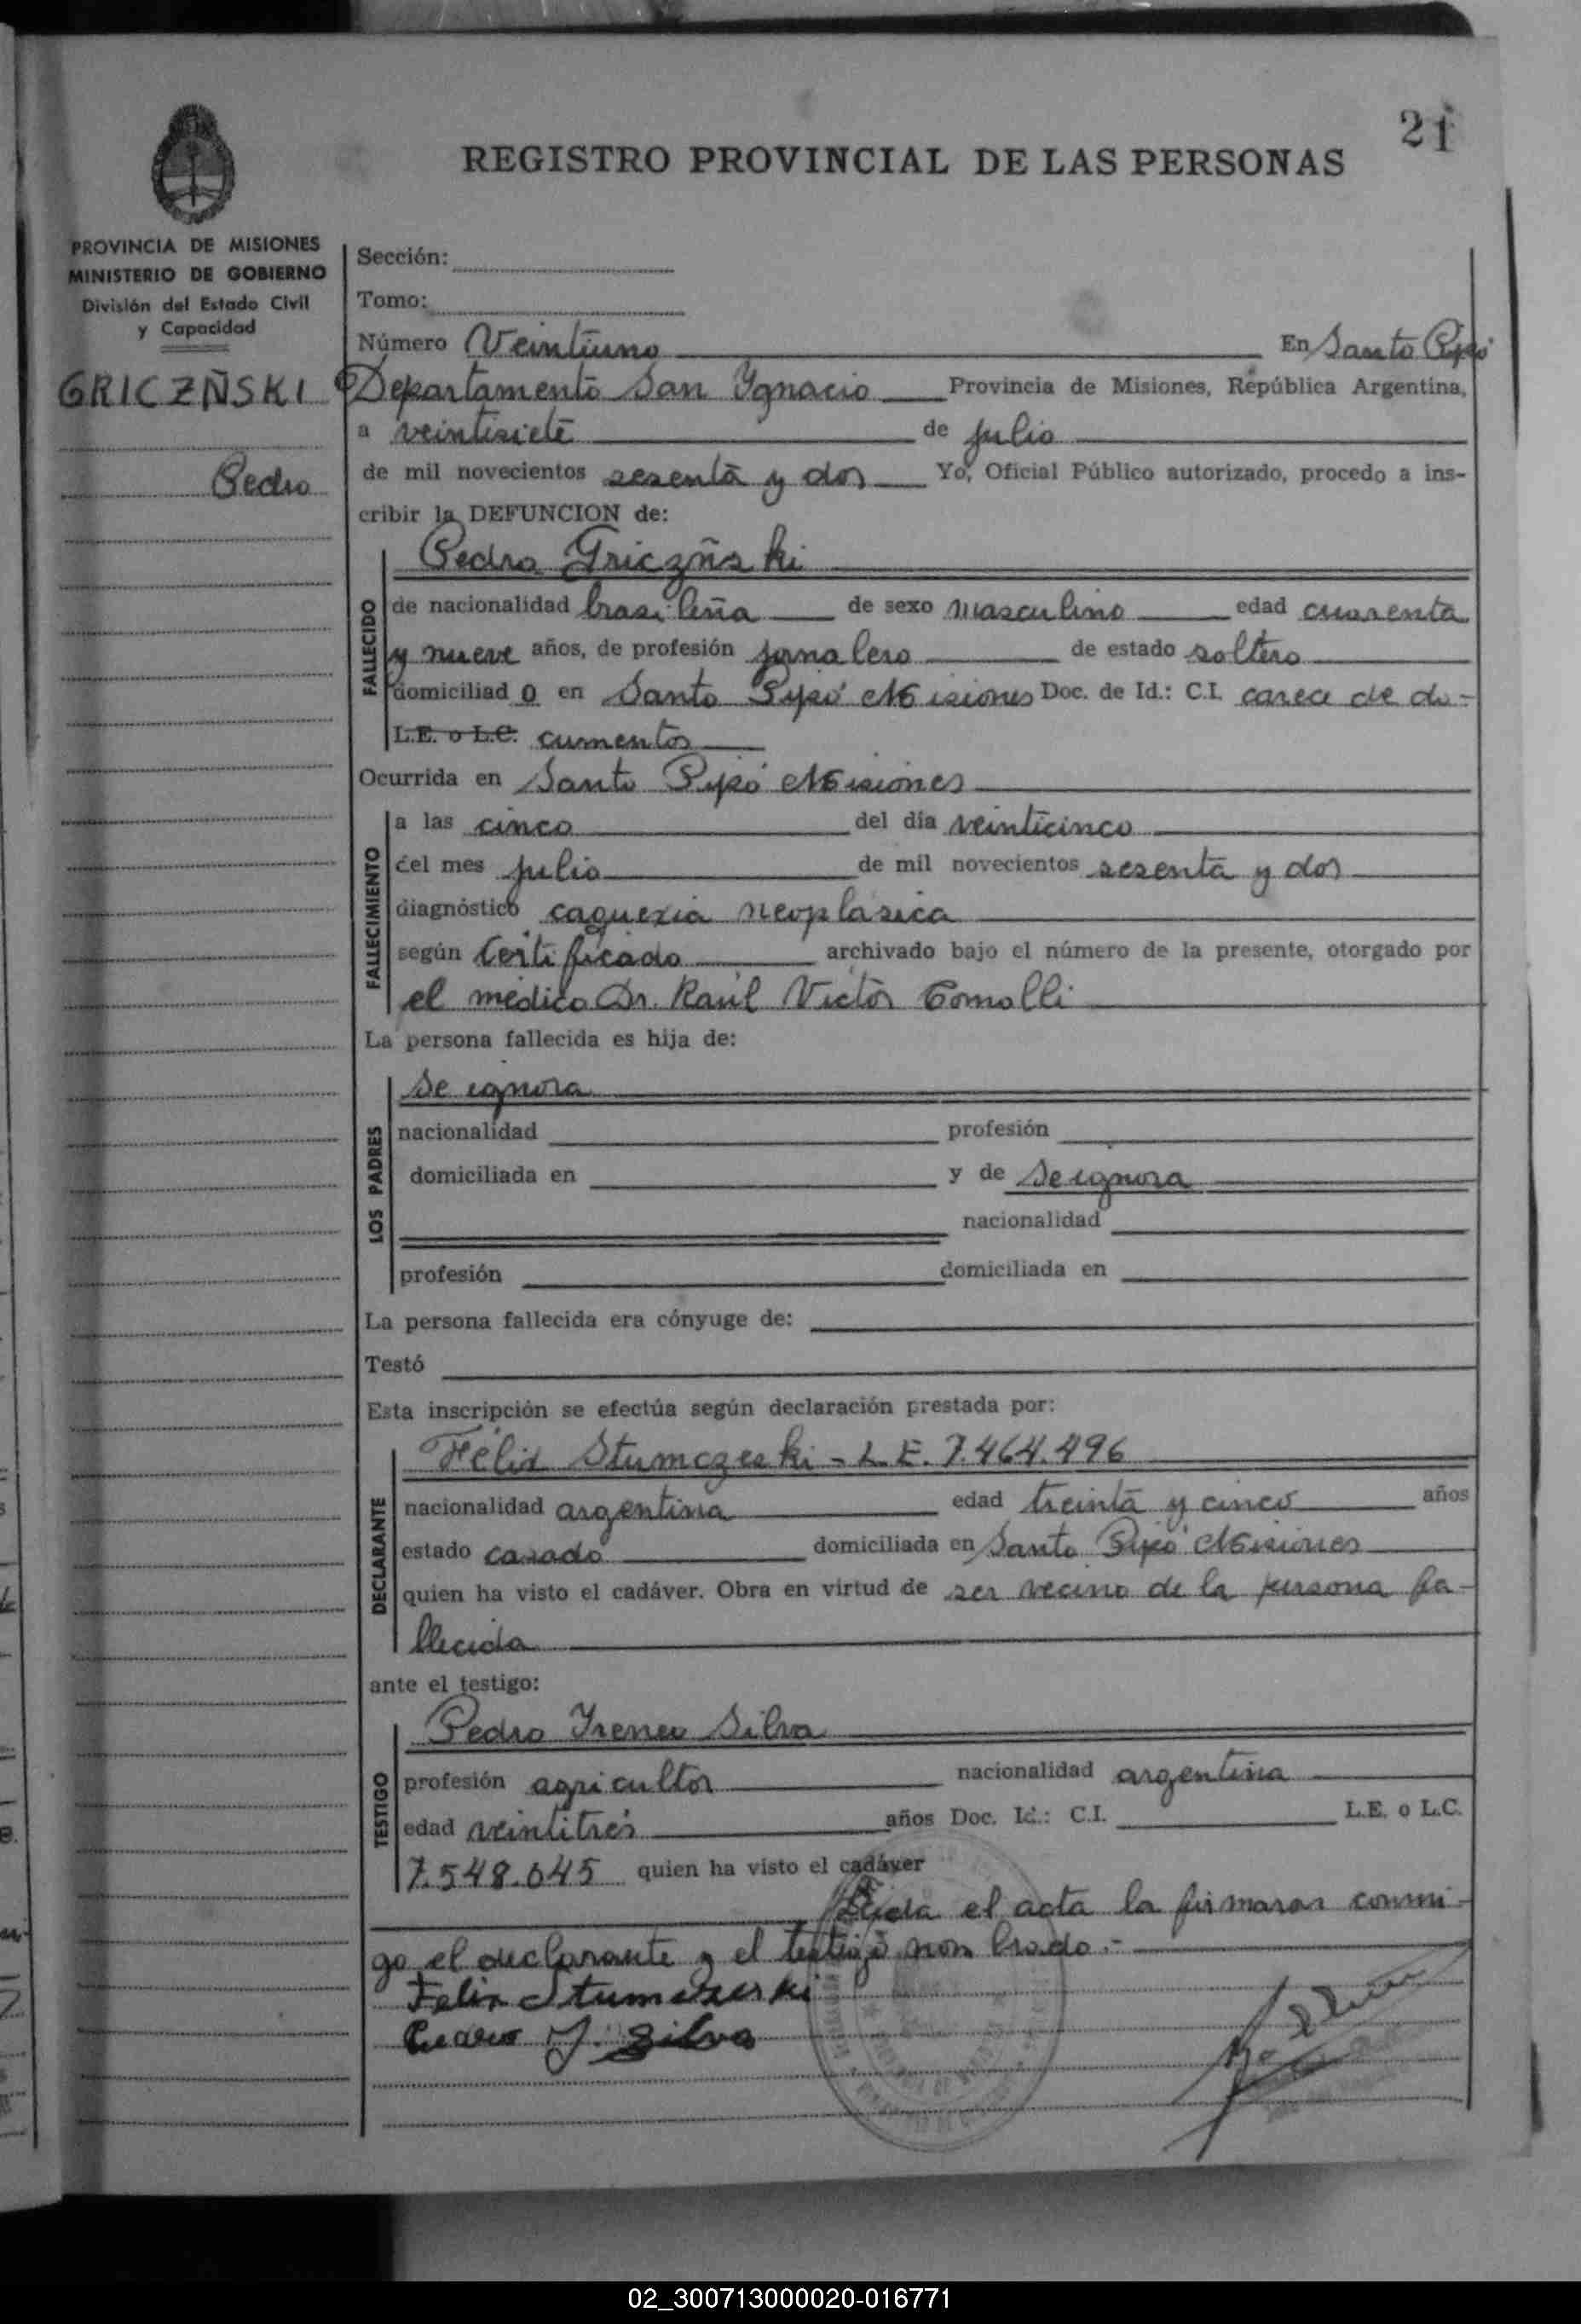 21
REGISTRO PROVINCIAL DE LAS PERSONAS
PROVINCIA DE MISIONES
MINISTERIO DE GOBIERNO
División del Estado Civil
y Capacidad
GRICZÑSKI
Pedro
Sección:
Tomo:
Número Veintiuno En Santo Pipó
Departamento San Ygnacio Provincia de Misiones, República Argentina,
a veintisiete de julio
de mil novecientos sesenta y dos Yo, Oficial Público autorizado, procedo a ins-
cribir la DEFUNCION de:
Pedro Griczñski
FALLECIDO
de nacionalidad brasileña de sexo masculino edad cuarenta
y nueve años, de profesión jornalero de estado soltero
domiciliad o en Santo Pipó Misiones Doc. de Id.: C.I. carece de do-
L.E. o L.C. cumentos
Ocurrida en Santo Pipó Misiones
FALLECIMIENTO
a las cinco del día veinticinco
del mes julio de mil novecientos sesenta y dos
diagnóstico caquexia neoplasica
según Certificado archivado bajo el número de la presente, otorgado por
el médico Dr. Raúl Victor Comolli
La persona fallecida es hija de:
LOS PADRES
Se ignora
nacionalidad profesión
domiciliada en y de Se ignora
nacionalidad
profesión domiciliada en
La persona fallecida era cónyuge de:
Testó
Esta inscripción se efectúa según declaración prestada por:
DECLARANTE
Félix Stumczeski - L.E. 7.464.496
nacionalidad argentina edad treinta y cinco años
estado casado domiciliada en Santo Pipó Misiones
quien ha visto el cadáver. Obra en virtud de ser vecino de la persona fa-
llecida
ante el testigo:
TESTIGO
Pedro Yreneo Silva
profesión agricultor nacionalidad argentina
edad veintitrés años Doc. Id.: C.I. L.E. o L.C.
7.548.045 quien ha visto el cadáver
Leída el acta la firmaron conmi-
go el declarante y el testigo nombrado.-
Felix Stumczeski
Pedro Y. Silva
02_300713000020-016771